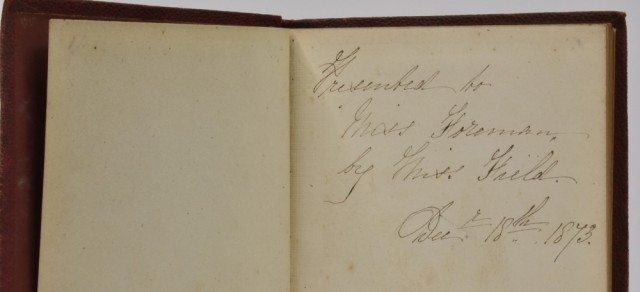 Presented to
Miss Foreman,
by Miss. Field.
Decr. 18th. 1873.